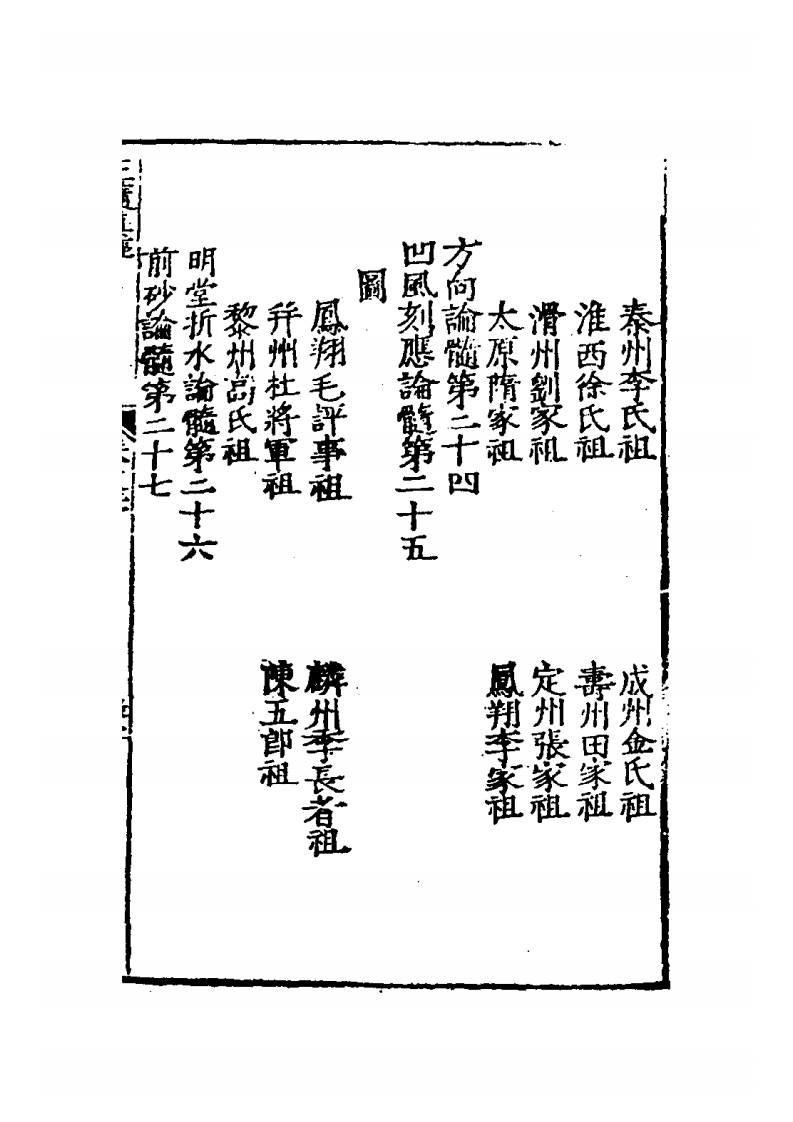 泰州李氏祖　成州金氏祖
淮西徐氏祖　壽州田家祖
滑州劉家祖　定州張家祖
太原隋家祖　鳳翔李家祖
方向論髓第二十四
凹風刻應論髓第二十五
圖
鳳翔毛評事祖　麟州李長者祖
幷州杜將軍祖　陳五郎祖
黎州高氏祖
明堂折水論髓第二十六
前砂論髓第二十七